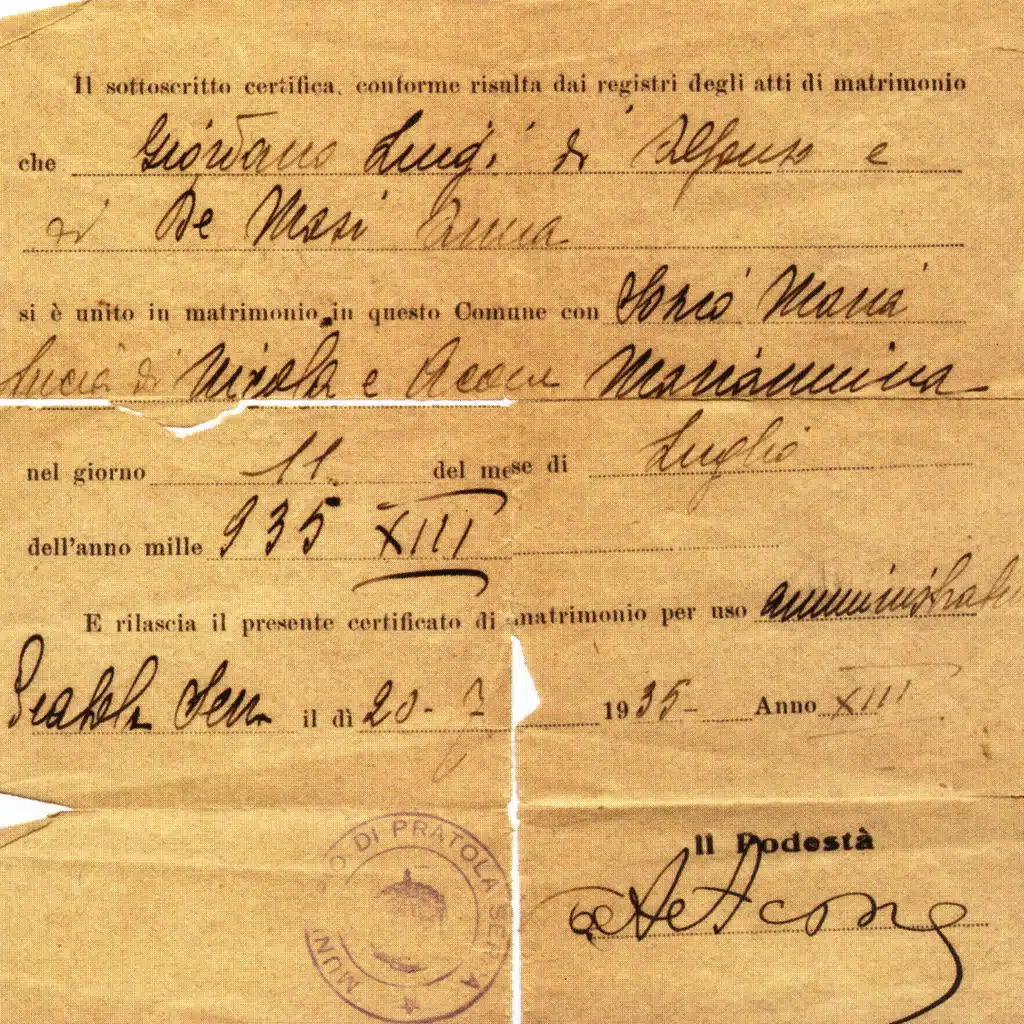 Il sottoscritto certifica, conforme risulta dai registri degli atti di matrimonio
che Giordano Luigi di Alfonso e
di De Masi Anna
si è unito in matrimonio in questo Comune con Maria
Lucia di Nicola e Mariannina
nel giorno 11. del mese di Luglio
dell'anno mille 935 XIII
E rilascia il presente certificato di matrimonio per uso
Pratola Serra il dì 20- 7 1935- Anno XIII
Il Podestà
MUN O DI PRATOLA SERRA